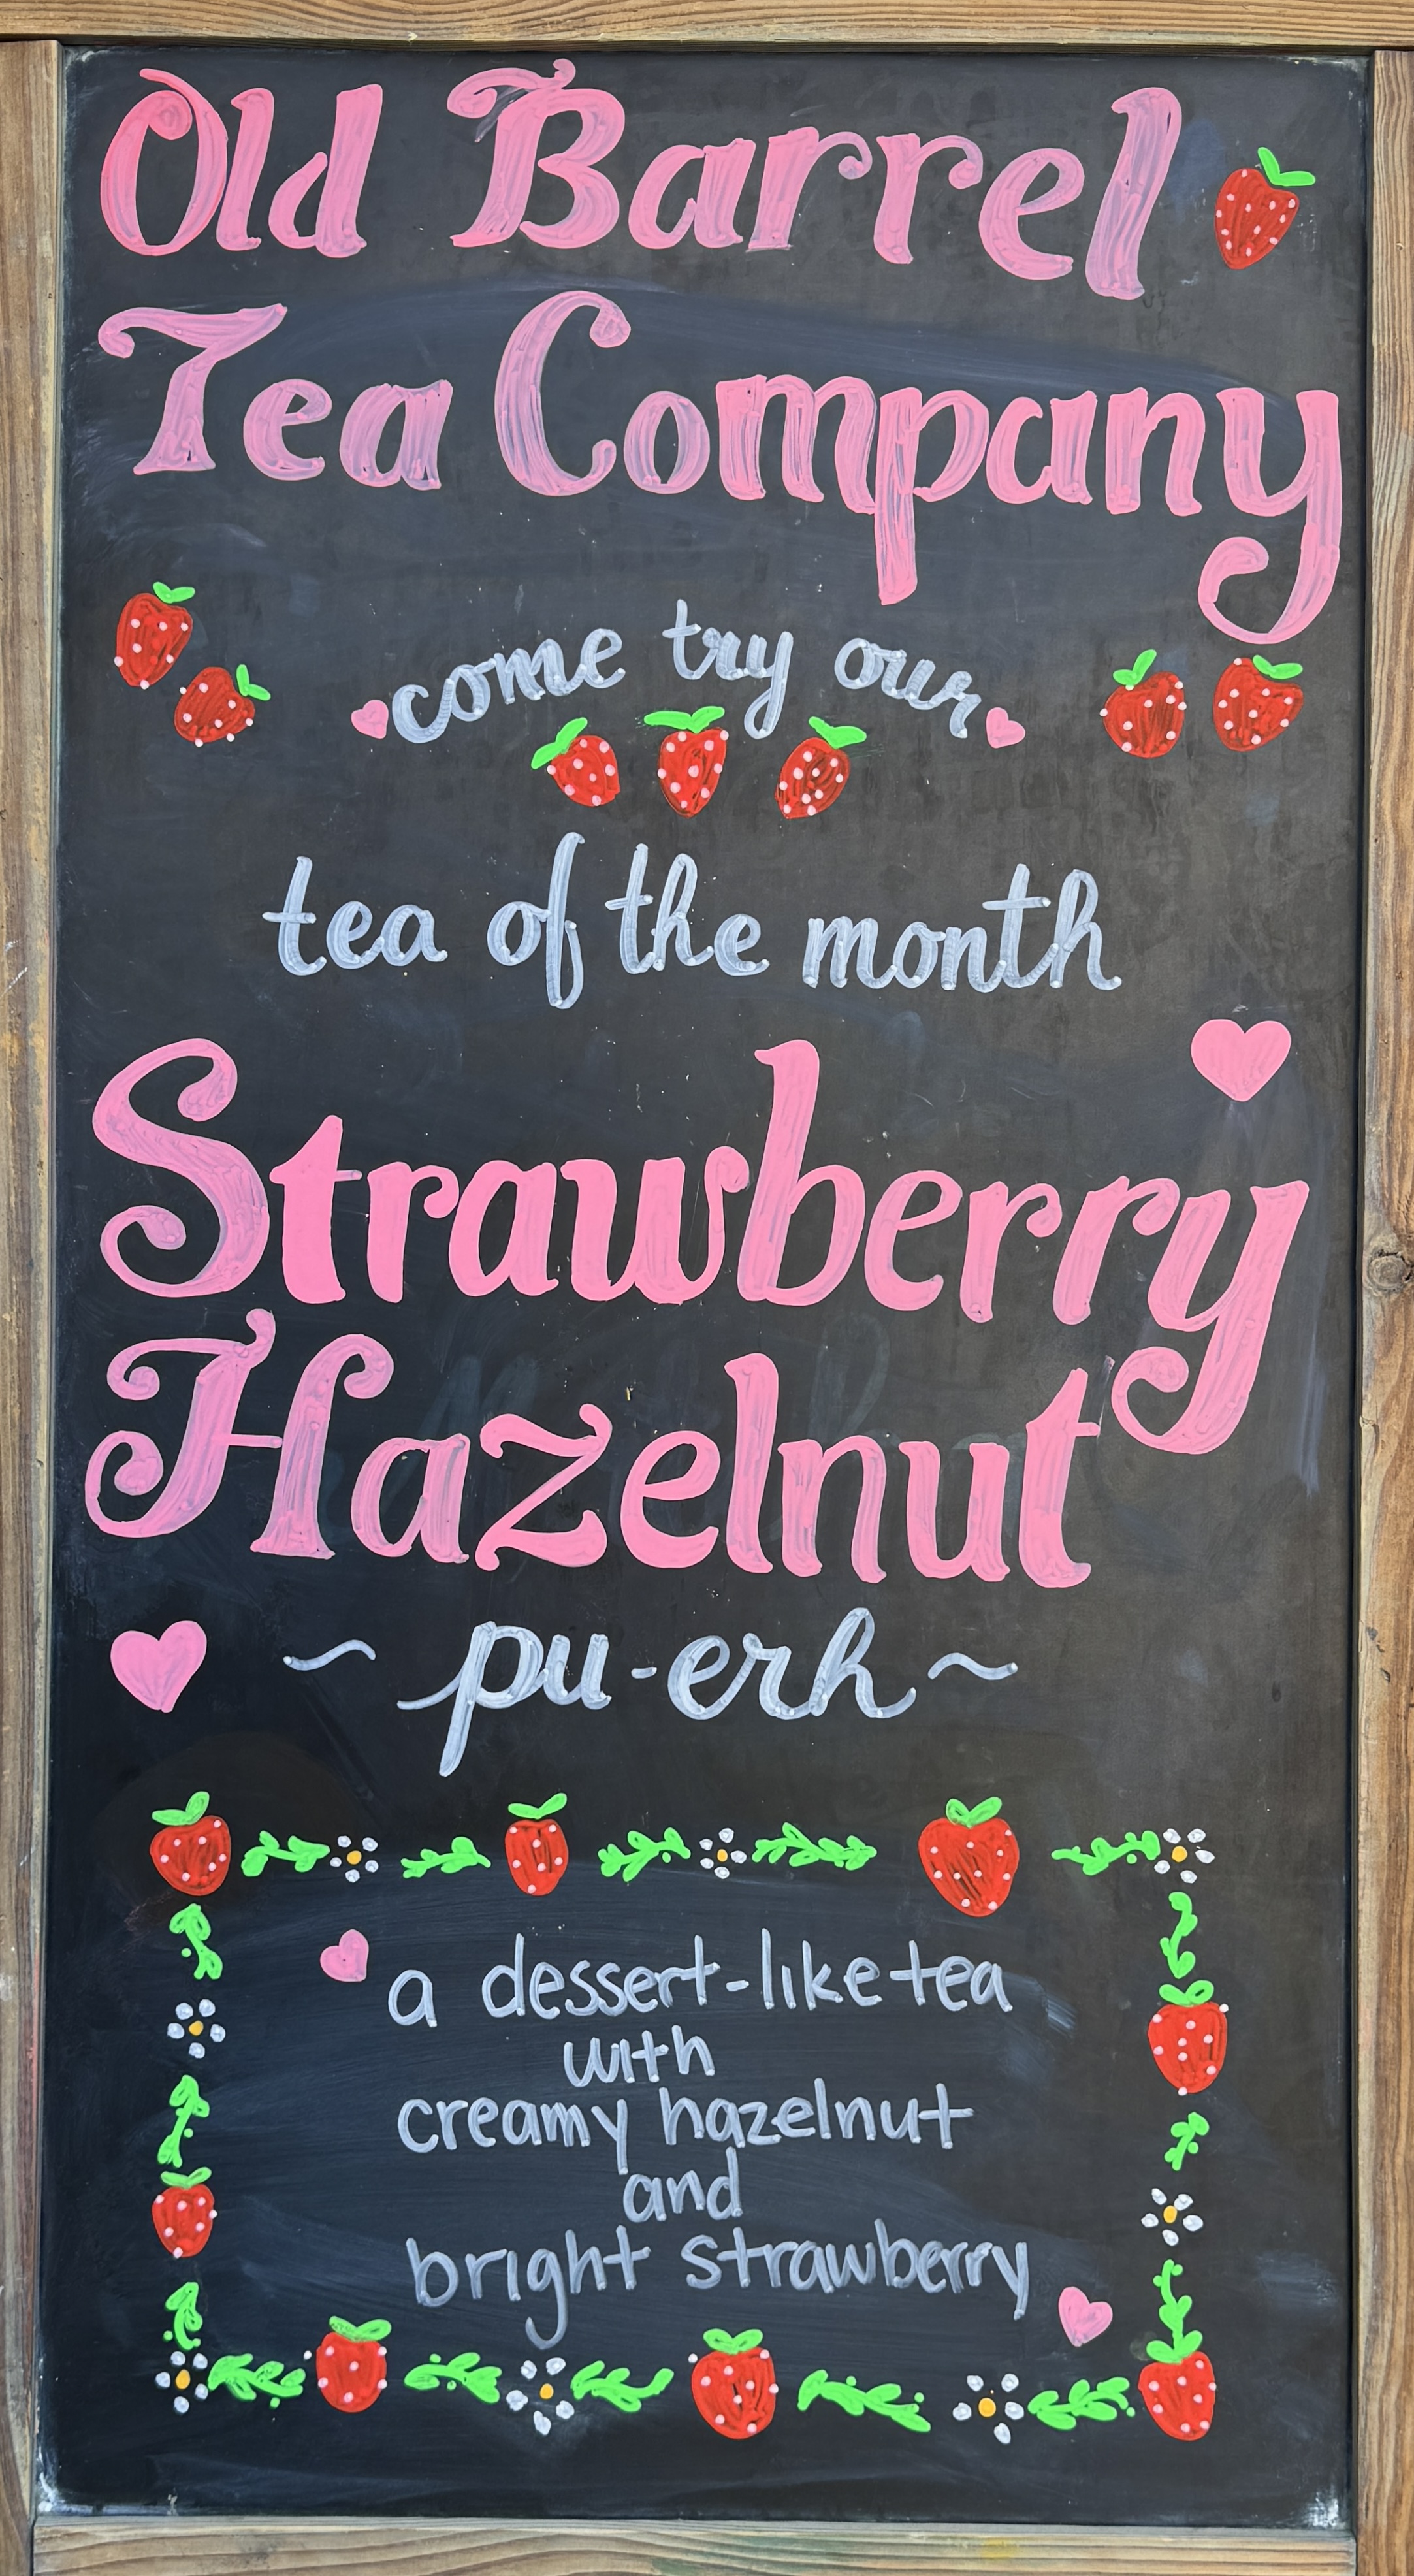 Old Barrel
Tea Company
come try our
tea of the month
Strawberry
Hazelnut
~ pu-erh ~
a dessert-like tea
with
creamy hazelnut
and
bright strawberry